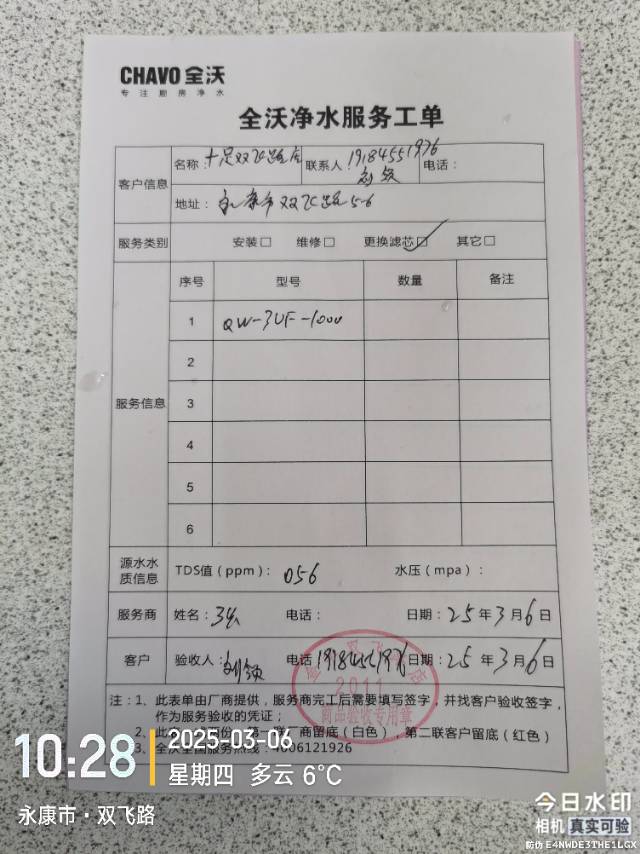 CHAVO 全沃
专注厨房净水
全沃净水服务工单
客户信息
名称：十足双飞路店
联系人
19184551976
电话：
地址：永康市双飞路56
服务类别
安装□ 维修□ 更换滤芯□ 其它□
服务信息
序号 型号 数量 备注
1 QW-3UF-1000
2
3
4
5
6
源水水
质信息
TDS值（ppm）： 056 水压（mpa）：
服务商 姓名： 电话： 日期：25年3月6日
客户 验收人： 电话 19184551976 日期：25年3月6日
2011
商品验收专用章
注：1、此表单由厂商提供，服务商完工后需要填写签字，并找客户验收签字，
作为服务验收的凭证；
2、此 厂商留底（白色），第二联客户留底（红色）
3、全沃全国服务热线：4006121926
10:28
2025-03-06
星期四 多云 6℃
永康市·双飞路
今日水印
相机 真实可验
防伪 E4NWDE3THE1LGX